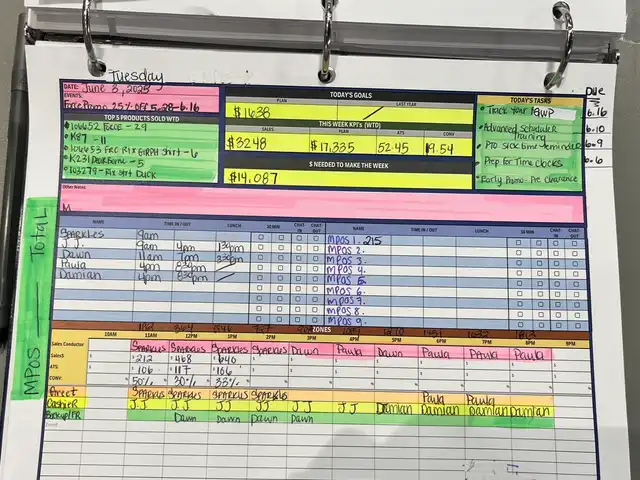 Tuesday
DATE: June 3, 2025
EVENTS:
Force Promo 25% OFF 5.28-6.16
TODAY'S GOALS
PLAN LAST YEAR
$1638
THIS WEEK KPI's (WTD)
SALES PLAN ATS CONV
$3248 $17,335 52.45 19.54
$ NEEDED TO MAKE THE WEEK
$14,087
TOP 5 PRODUCTS SOLD WTD
106652 FORCE - 29
K87 - 11
106653 FRC Rlx GRPH Shirt - 6
K231 - 5
103279 - Rlx Strt Duck
TODAY'S TASKS
Due
Track Your GWP 6.16
Advanced Scheduler Training 6.10
Pro Sick Time Reminder 6.9
Prep for Time Clocks 6.6
Early Promo - Pre Clearance
Other Notes
M
MPOS — TOTAL
NAME TIME IN / OUT LUNCH 10 MIN CHAT-IN CHAT-OUT NAME TIME IN / OUT LUNCH 10 MIN CHAT-IN CHAT-OUT
Sparkles 9am MPOS 1. 215
J.J. 9am 4pm 130pm MPOS 2.
Dawn 11am 7pm 330pm MPOS 3.
Paula 4pm 830pm MPOS 4.
Damian 4pm 830pm MPOS 5.
MPOS 6.
MPOS 7.
MPOS 8.
MPOS 9.
ZONES
10AM 11AM 12PM 1PM 2PM 3PM 4PM 5PM 6PM 7PM 8PM 9PM
Sales Conductor Sparkles Sparkles Sparkles Sparkles Dawn Paula Dawn Paula Paula Paula
Sales$ 212 468 640
ATS: 106 117 106
CONV: 50% 30% 33%
Greet Sparkles Sparkles Sparkles Sparkles Paula Paula
Cashier J.J J.J JJ JJ JJ JJ Damian Damian Damian Damian
Backup/FR Dawn Dawn Dawn Dawn